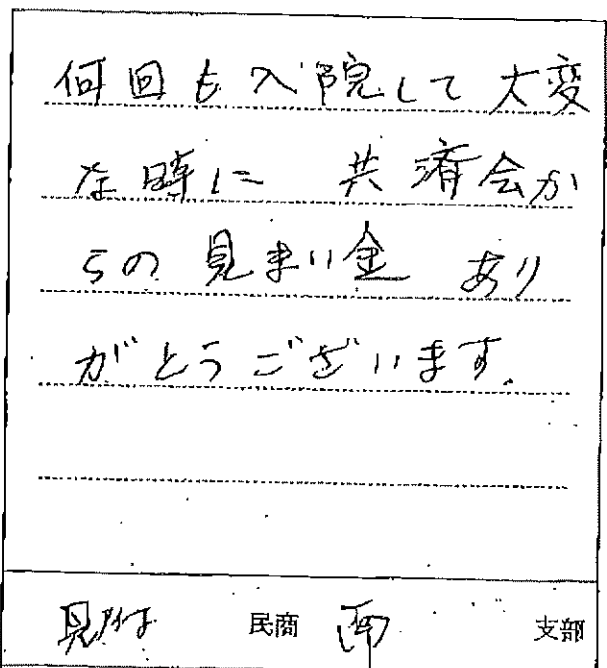 何回も入院して大変
な時に 共済会か
らの 見まい金 あり
がとうございます。
見附 民商 西 支部